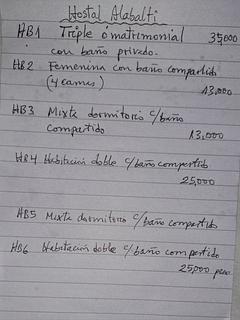 Hostal Alabalti
HB1 Triple ó matrimonial 35,000
con baño privado.
HB2 Femenina con baño compartido
(4 camas) 13,000
HB3 Mixto dormitorio c/baño
Compartido 13,000
HB4 Habitación doble c/baño compartido
25,000
HB5 Mixto dormitorio c/baño compartido
HB6 Habitación doble c/baño compartido
25,000 peso